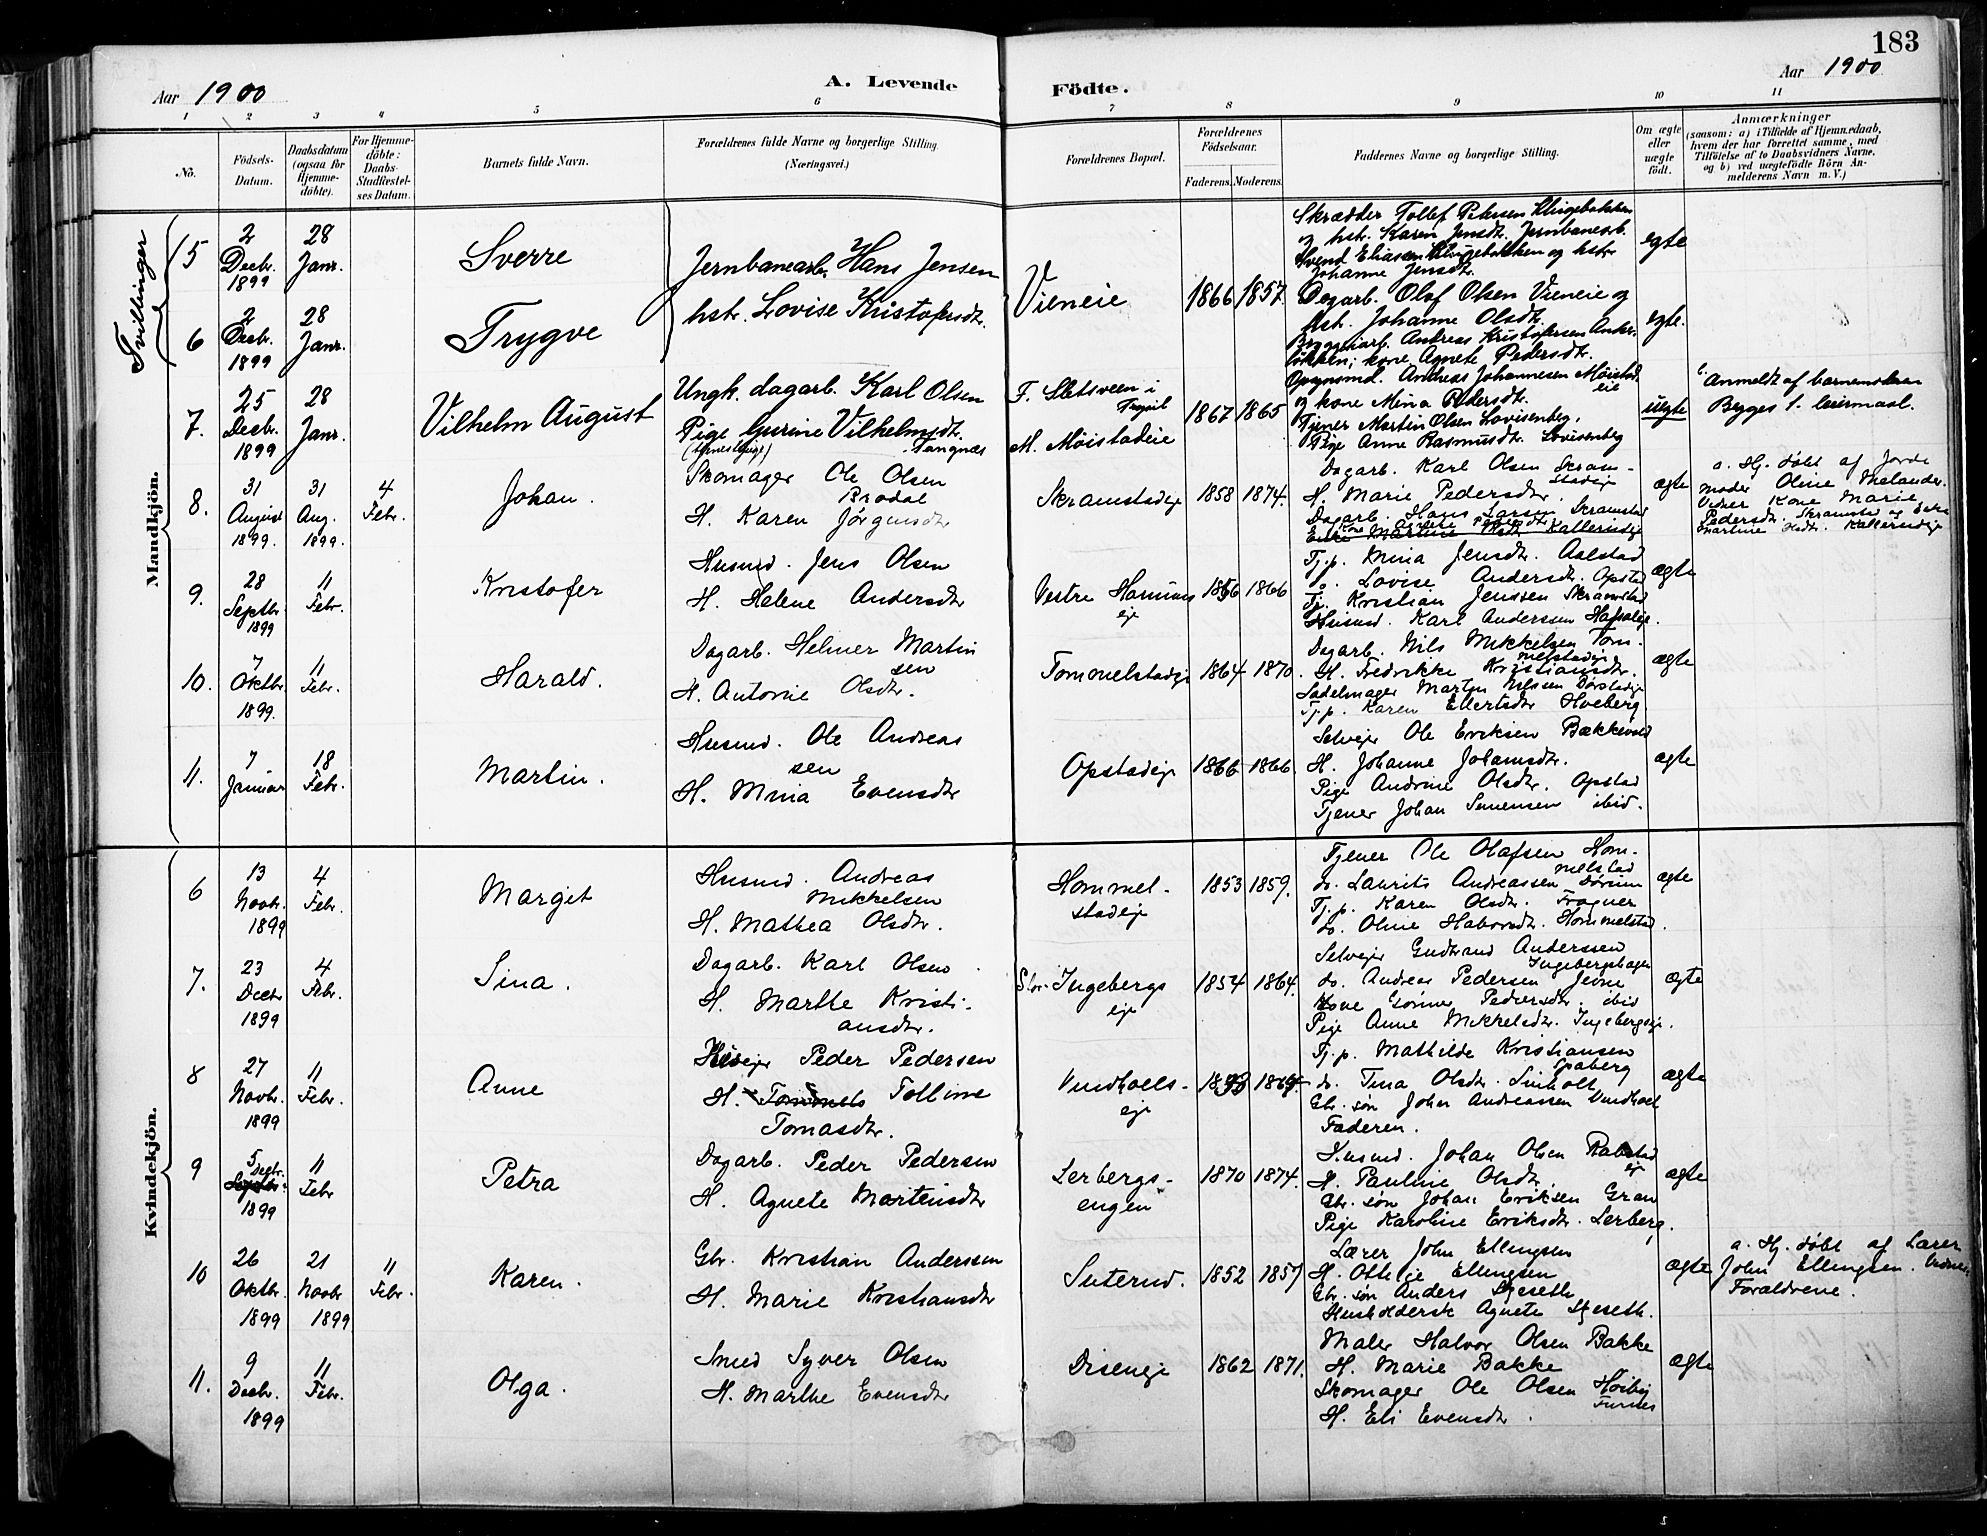 183
Aar 1900
A. Levende Födte.
Aar 1900
1 2 3 4 5 6 7 8 9 10 11
No.
Födsels-Datum.
Daabsdatum (ogsaa for Hjemme-döbte).
For Hjemme-döbte: Daabs-Stadfæstel-ses Datum.
Barnets fulde Navn.
Forældrenes fulde Navne og borgerlige Stilling. (Næringsvei.)
Forældrenes Bopæl.
Forældrenes Födselsaar.
Faderens. Moderens.
Faddernes Navne og borgerlige Stilling.
Om ægte eller uægte født.
Anmærkninger
(saasom: a) i Tilfælde af Hjemmedaab, hvem der har forrettet samme, med Tilföielse af to Daabsvidners Navne, og b) ved uægtefödte Börn Anmelderens Navn m. V.)
Mandkjön.
Tvillinger
5
2 Decbr. 1899
28 Janr.
Sverre
Jernbanearb. Hans Jensen
hstr. Lovise Kristofersdtr.
Vieneie
1866
1857.
Skrædder Tollef Petersen Klingebakken
og hstr. Karen Jensdtr. Jernbanearb.
Svend Eliasen Klingebakken og hstr
Johanne Jensdtr.
egte
6
2 Decbr. 1899
28 Janr.
Trygve
Dagarb. Olof Olsen Vieneie og
hstr. Johanne Olsdtr.
Byggeiarb. Andreas Kristofersen Anker-
løkken; kone Agnete Pedersdtr.
egte.
7.
25 Decbr. 1899
28 Janr.
Vilhelm August
Ungk. dagarb. Karl Olsen
Pige Gurine Vilhelmsdtr.
Tangnæs
F. Sletsveen i
M. Möistadeie
1867
1865
Opsynsmd. Andreas Johannesen Möistad
eie
og kone Mina Pedersdtr.
Tjener Martin Olsen Lovisenberg.
Pige Anne Rasmusdtr. Lovisenberg
uegte
Anmeldt af barnemoderen
Byges 1. leiermaal.
8.
31 August 1899.
31 Aug. 1899.
4 Febr.
Johan.
Skomager Ole Olsen
Brodal
H. Karen Jørgensdtr
Skramstadeje
1858
1874.
Dagarb. Karl Olsen Skram-
stadeje
H. Marie Pedersdtr.
Dagarb. Hans Larsen Skramstad
Enke Martine Olsdtr. Kallerudeje
ægte
a. Hj. døbt af Jorde
moder Oline Thelander.
Vidner Kone Marie
Pedersdtr. Skramstad og Enke
Martine Olsdtr. Kallerudeje
9.
28 Septbr. 1899
11 Febr.
Kristofer
Husmd. Jens Olsen
H. Helene Andersdtr
Vestre Hommerseje
1856
1866
Tj.p. Mina Jensdtr. Aalstad
do. Lovise Andersdtr. Opstad
Tj. Kristian Jenssen Skramstad
Husmd. Karl Anderssen
ægte
10.
7 Oktbr 1899.
11 Febr.
Harald.
Dagarb. Helmer Martin
sen
H. Antonie Olsdtr.
Tommelstadeje
1864
1870.
Dagarb. Nils Mikkelsen Tom-
melstadeje
H. Fredrikke Kristiansdtr.
Sadelmager Martin Nilssen Dørstadeje
Tj.p. Karen Ellertsdtr Hveberg
ægte
11.
7 Januar
18 Febr.
Martin.
Husmd. Ole Andreas
sen
H. Mina Evensdtr
Opstadeje
1866
1866.
Selvejer Ole Eriksen Bækkevold
H. Johanne Johansdtr.
Pige Andrine Olsdtr. Opstad
Tjener Johan Simensen ibid.
ægte
Kvindekjön.
6
13 Novbr. 1899
4 Febr.
Margit
Husmd. Andreas
Mikkelsen
H. Mathea Olsdtr.
Hommel-
stadeje
1853
1859.
Tjener Ole Olafsen Hom-
melstad
do. Laurits Andreassen Dørum
Tj.p. Karen Olsdtr. Fragner
do. Oline Halvorsdtr. Hommelstad.
ægte
7.
23 Decbr 1899
4 Febr.
Sina.
Dagarb. Karl Olsen
H. Marthe Kristi-
ansdtr.
Stor-Ingebergs
eje
1854
1864.
Selvejer Gudbrand Anderssen
Ingeberghagen
do. Andreas Pedersen Jevne
Kone Gørine Pedersdtr. ibid
Pige Anne Mikkelsdtr. Ingebergseje.
ægte
8
27 Novbr. 1899
11 Febr.
Anne
Peder Pedersen
H. Tolline
Tomasdtr.
Vindhoels-
eje
Tj.p. Mathilde Kristiansen
Spaberg
do. Tina Olsdtr. Linholt
Gbr. søn Johan Andreassen Vindhoel
Faderen.
ægte
9
5 Decbr. 1899
11 Febr
Petra
Dagarb. Peder Pedersen
H. Agnete Martinsdtr
Lerbergs-
engen
1870
1874.
Husmd. Johan Olsen Rabstad
ej
H. Pauline Olsdtr.
Gbr. søn Johan Eriksen Gran
Pige Karoline Eriksdtr. Lerberg.
ægte
10
26 Oktbr. 1899
21 Novbr 1899
11 Febr.
Karen.
Gbr. Kristian Anderssen
H. Marie Kristiansdtr
Suterud.
1852
1857
Lærer John Ellengsen
H. Ottilie Ellengsen
Gbr. søn Anders Skjeseth
Husholderske Agnete Skjeseth.
ægte
a. Hj. døbt af Lærer
John Ellengsen. Vidner,
Forældrene.
11.
9 Decbr. 1899
11 Febr.
Olga.
Smed Syver Olsen
H. Marthe Evensdtr
Diseneje
1862
1871.
Maler Halvor Olsen Bakke
H. Marie Bakke
Skomager Ole Olsen Høiby
Furnes
H. Eli Evensdtr.
ægte